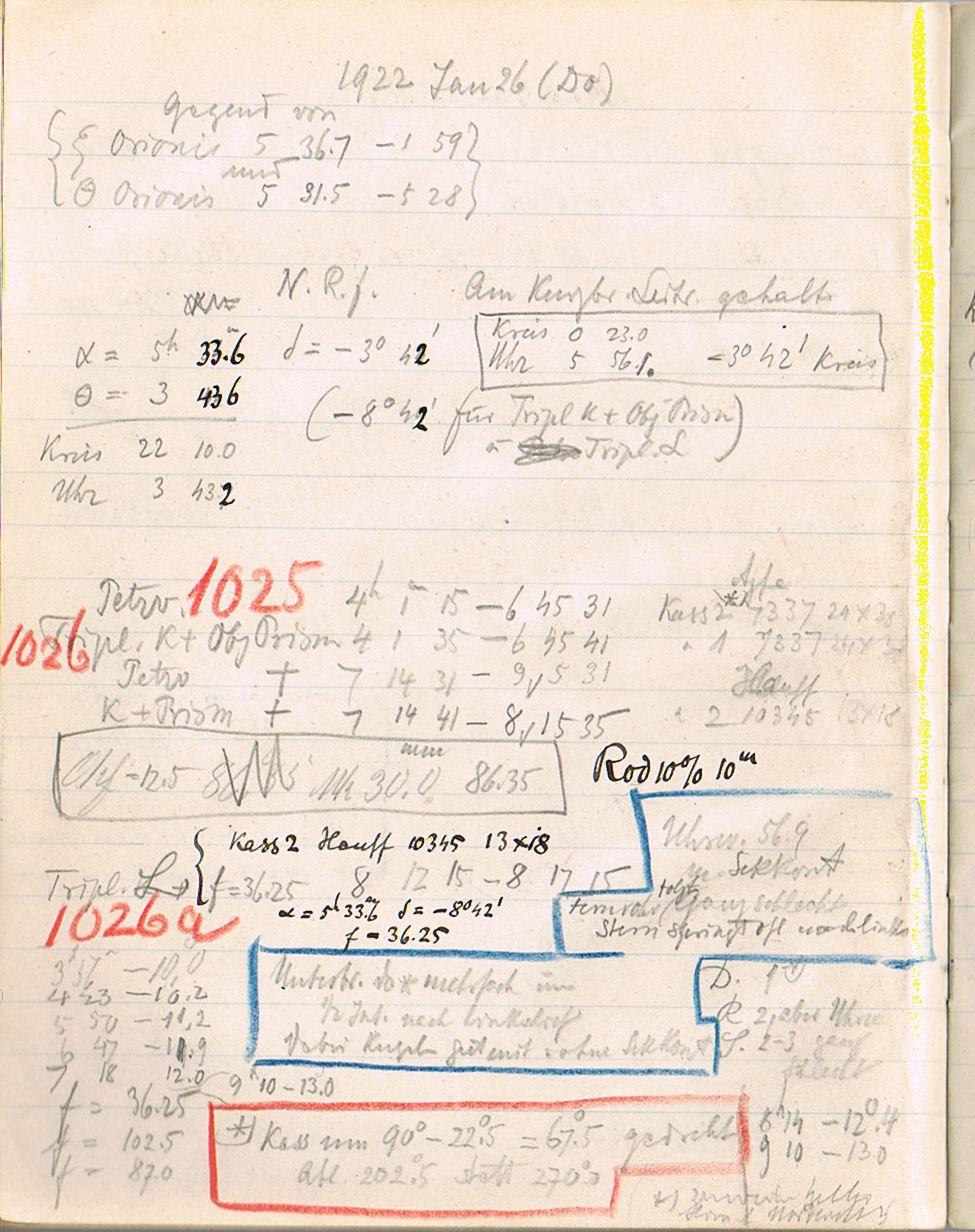 1922 Jan 26 (Do)
Gegend von
ξ Orionis 5 36.7 -1 59
und
Θ Orionis 5 31.5 -5 28
N. R. f.
Am gehalt.
α = 5h 33.m6 δ = -3° 42'
Kreis 0 23.0
Uhr 5 56.1. -3° 42' Kreis
Θ = 3 436
(-8° 42' für Tripl K + Obj Prism)
Tripl. L
Kreis 22 10.0
Uhr 3 43.2
Petzv. 1025 4h 1m 15 - 6 45 31 Kass 2 *) Agfa 7337 24×30
1026 Tripl. K + Obj Prism 4 1 35 - 6 45 41 " 1 7337
Petzv + 7 14 31 - 9 5 31 Hauff
K + Prism + 7 14 41 - 8 15 35 " 2 10345 13×18
Obj = 12.5 30.0 mm 86.35
Rod 10% 10m
Kass 2 Hauff 10345 13×18
Tripl. L → f = 36.25 8 12 15 - 8 17 15
α = 5h 33.m6 δ = -8° 42'
f = 36.25
1026a
Uhrw. 56.9
Sekkont
Fernrohr folgt ganz schlecht
Stern springt oft nach links
3h 37m -10.0
4 23 -10.2
5 50 -11,2
6 47 -11.9
7 18 12.0
9h 10 - 13.0
Unterbr. da * mehrfach um
1/2 Int. nach links lief
Dabei Kugeln gut mit u ohne Sekkont
D. 1
R 2, aber Uhrw
S. 2-3 ganz
schlecht
f = 36.25
f = 102.5
f = 87.0
*) Kass um 90° - 22.°5 = 67.°5 gedreht
Abl. 202.°5 statt 270°.0
8h 14 -12.°4
9 10 -13.0